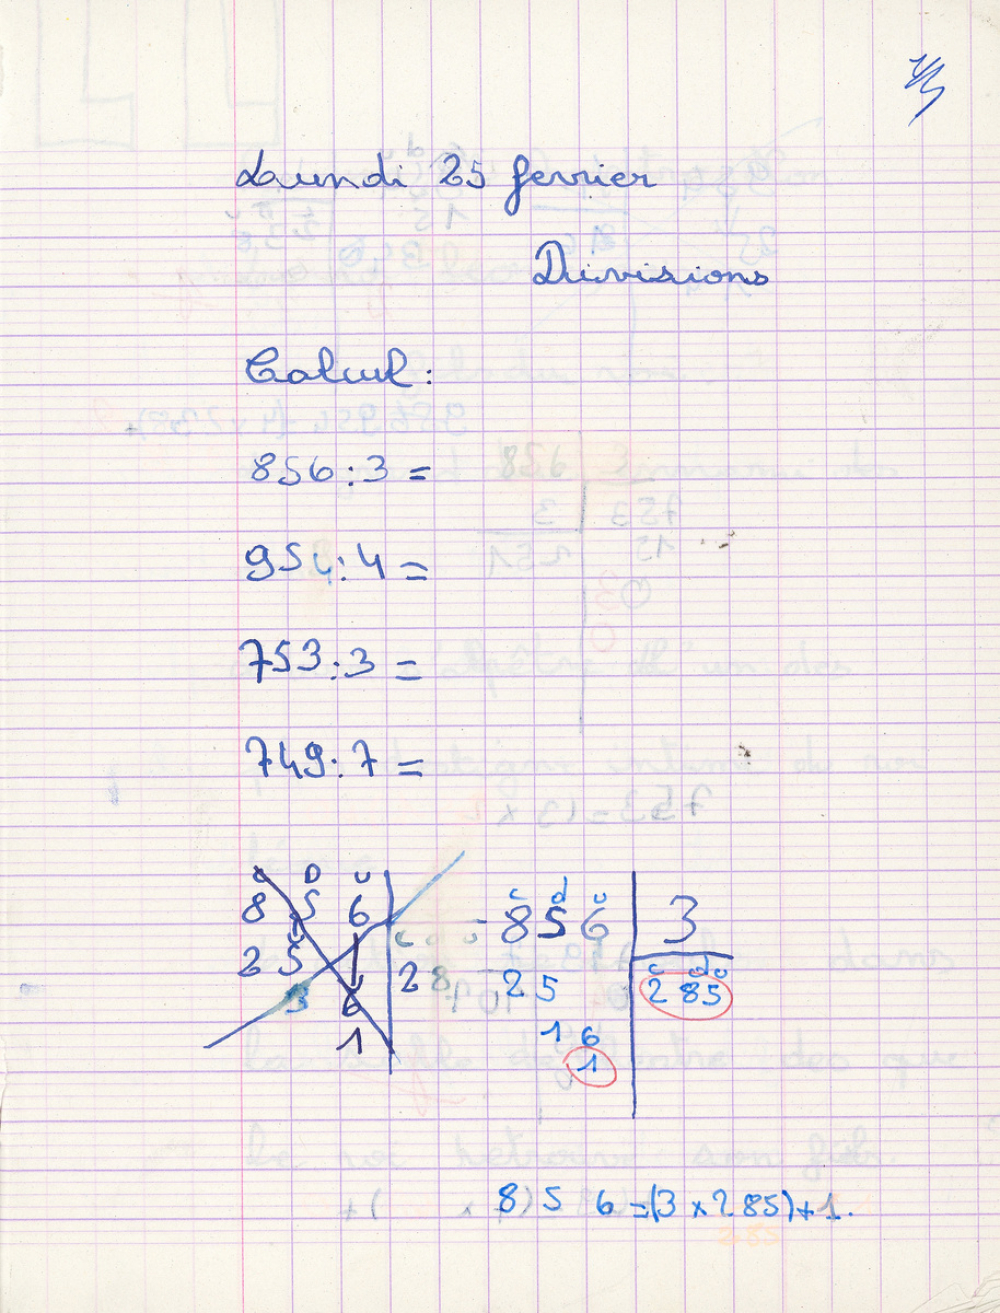 Lundi 25 fevrier
Divisions
Calcul :
856 : 3 =
954 : 4 =
753 : 3 =
749 : 7 =
C D U
8 5 6
2 5 2 8
3 6
1
c d u
- 8 5 6 3
c d u
2 5 2 85
1 6
1
8 5 6 = (3 x 2 85) + 1.